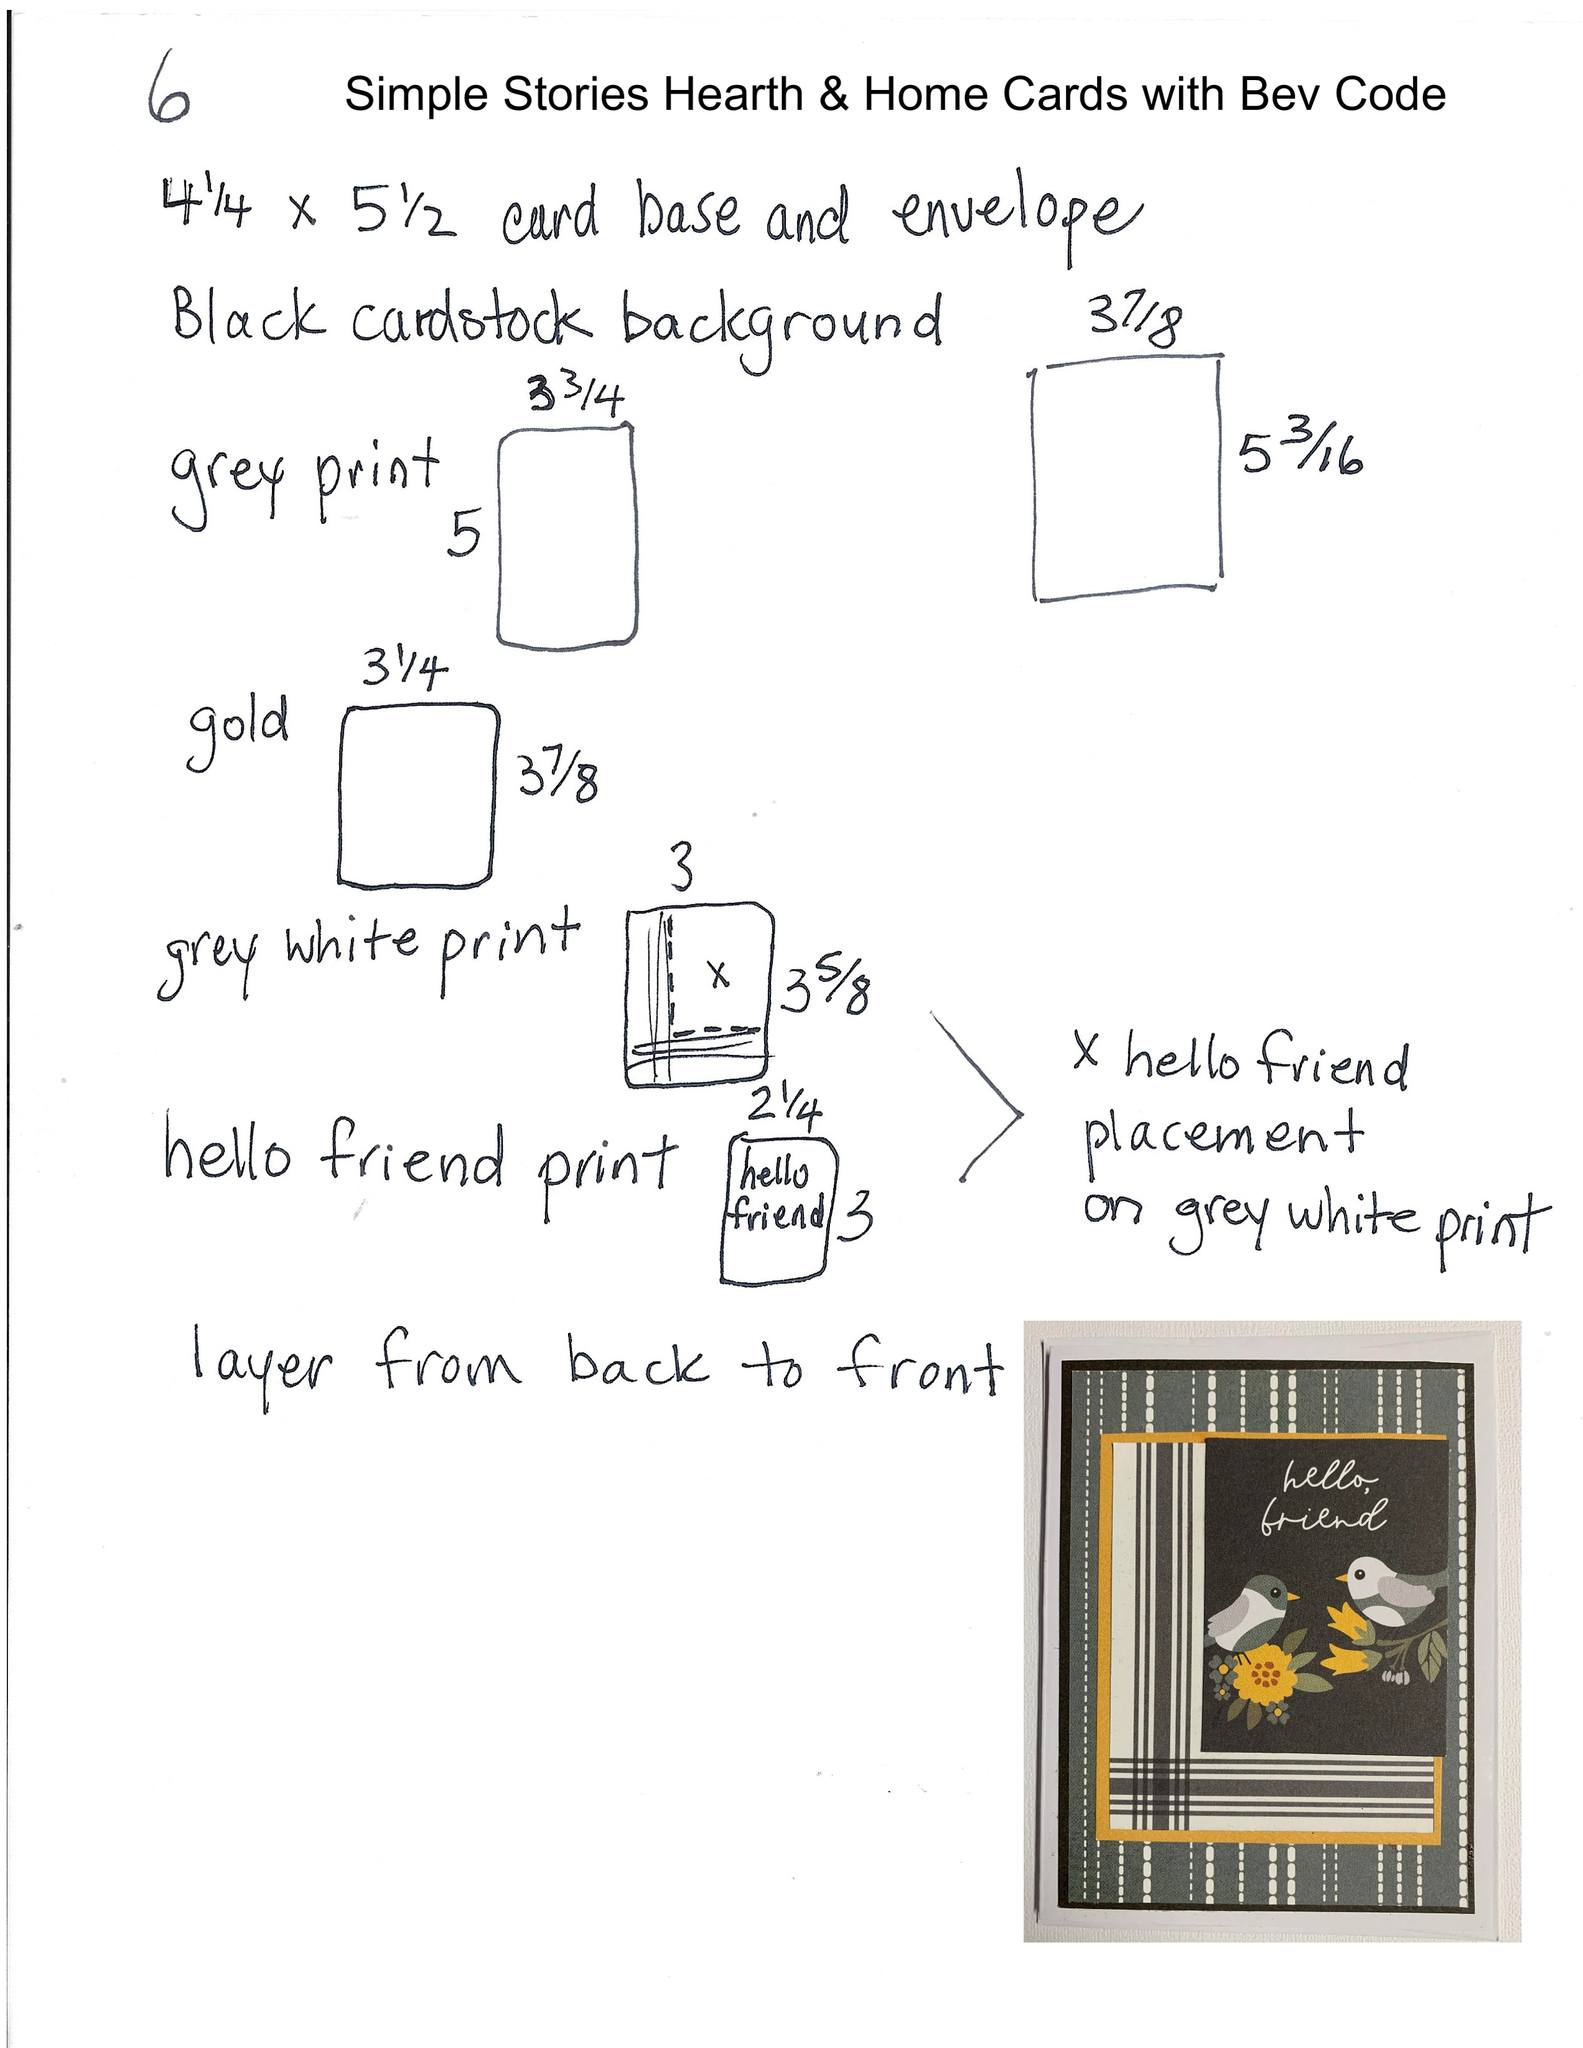 6 Simple Stories Hearth & Home Cards with Bev Code
4 1/4 x 5 1/2 card base and envelope
Black cardstock background
3 7/8
5 3/16
grey print
3 3/4
5
gold
3 1/4
3 7/8
grey white print
3
x
3 5/8
hello friend print
2 1/4
hello
friend
3
x hello friend
placement
on grey white print
layer from back to front
hello,
friend